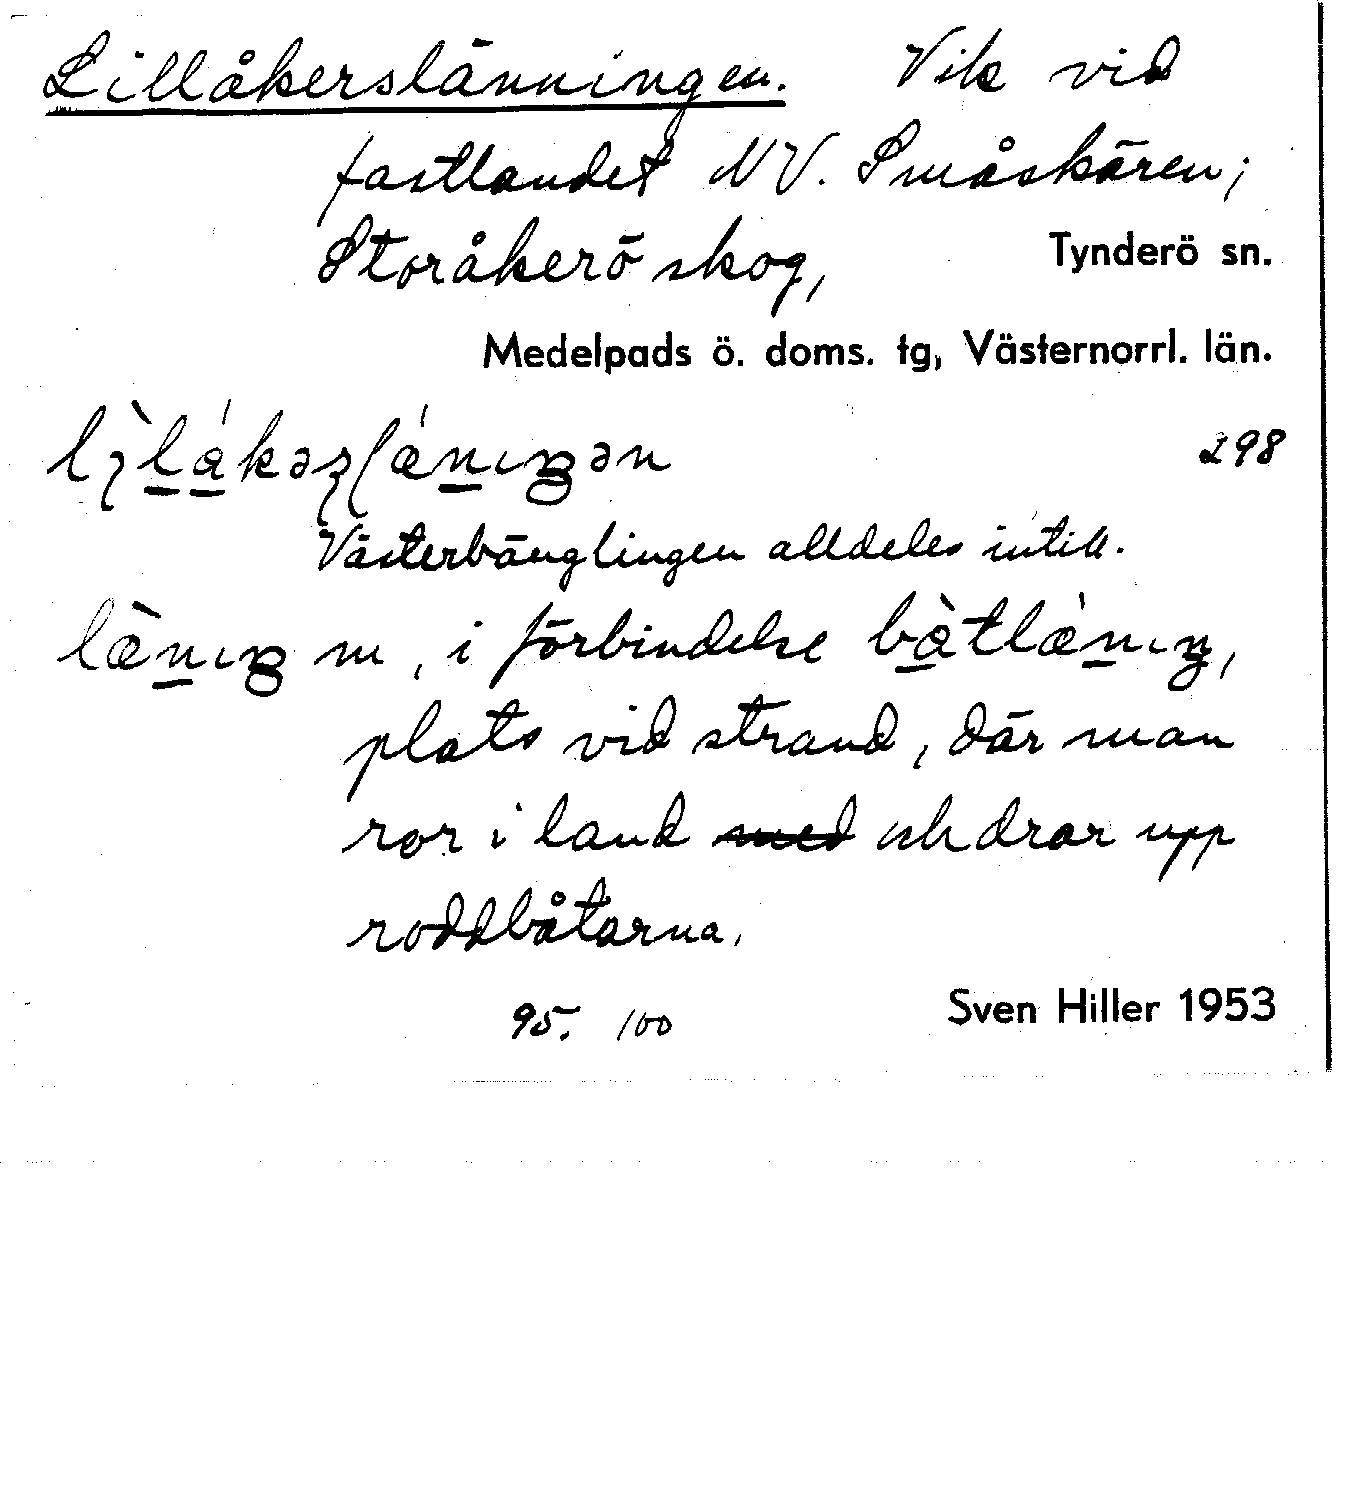 Lillåkerslänningen. Vik vid
fastlandet NV. Småskären;
Storåkerö skog, Tynderö sn.
Medelpads ö. doms. tg, Västernorrl. län.
298
Västerbänglingen alldeles intill.
m, i förbindelse
plats vid strand, där man
ror i land med och drar upp
roddbåtarna.
95. 100 Sven Hiller 1953